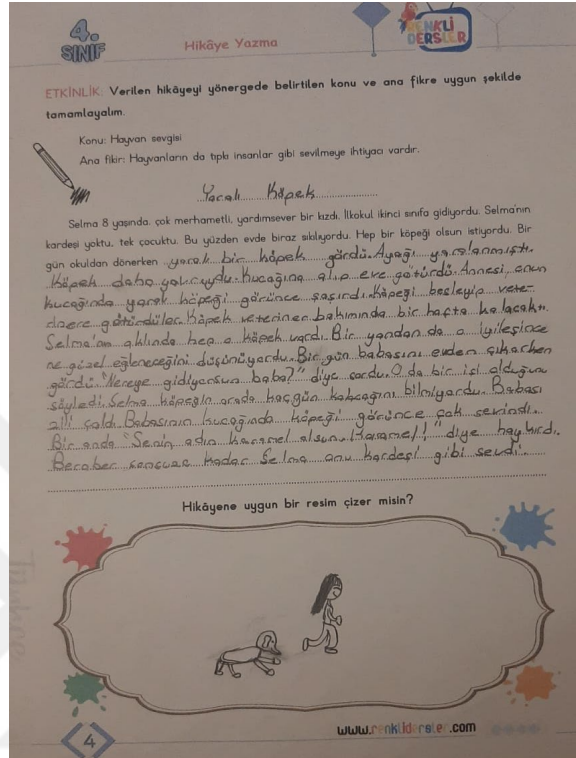 4.
SINIF
Hikâye Yazma
RENKLİ
DERSLER
ETKİNLİK: Verilen hikâyeyi yönergede belirtilen konu ve ana fikre uygun şekilde
tamamlayalım.
Konu: Hayvan sevgisi
Ana fikir: Hayvanların da tıpkı insanlar gibi sevilmeye ihtiyacı vardır.
Yaralı Köpek
Selma 8 yaşında, çok merhametli, yardımsever bir kızdı. İlkokul ikinci sınıfa gidiyordu. Selma'nın
kardeşi yoktu, tek çocuktu. Bu yüzden evde biraz sıkılıyordu. Hep bir köpeği olsun istiyordu. Bir
gün okuldan dönerken yaralı bir köpek gördü. Ayağı yaralanmıştı.
Köpek daha yavruydu. Kucağına alıp eve götürdü. Annesi onun
kucağında yaralı köpeği görünce şaşırdı. Köpeği besleyip vete-
rinere götürdüler. Köpek veteriner bakımında bir hafta kalacaktı.
Selma'nın aklında hep o köpek vardı. Bir yandan da o iyileşince
ne güzel eğleneceğini düşünüyordu. Bir gün babasını evden çıkarken
gördü. "Nereye gidiyorsun baba?" diye sordu. O da bir işi olduğunu
söyledi. Selma köpeğin orada kaç gün kalacağını bilmiyordu. Babası
zili çaldı. Babasının kucağında köpeği görünce çok sevindi.
Bir anda "Senin adın karamel olsun. Karamel!" diye haykırdı.
Beraber sonsuza kadar Selma onu kardeşi gibi sevdi.
Hikâyene uygun bir resim çizer misin?
www.renklidersler.com
4